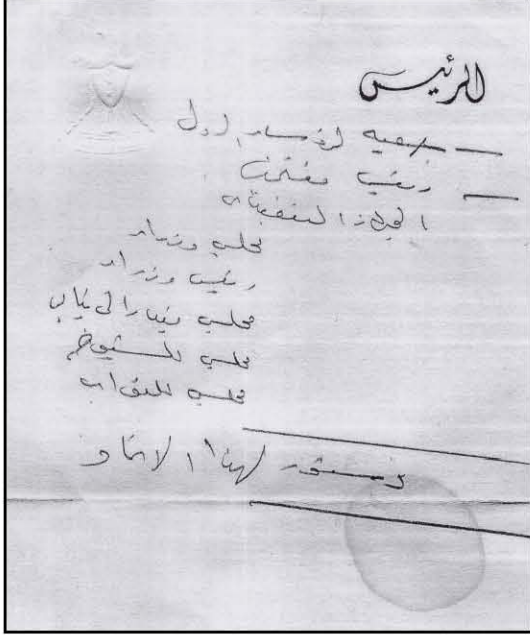 الرئيس
— جمعيه لرؤساء الدول
— رئيس منتخب
الجهاز التنفيذي
مجلس وزراء
رئيس وزراء
مجلس نيابي
مجلس للشيوخ
مجلس للنواب
دستور لهذا الاتحاد